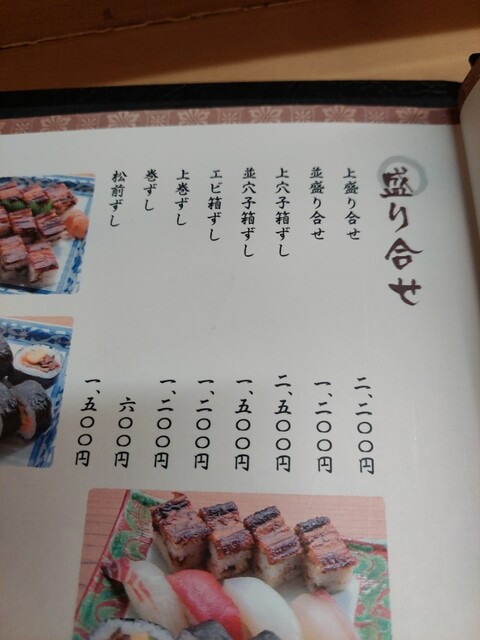 盛り合せ
上盛り合せ 二、二〇〇円
並盛り合せ 一、二〇〇円
上穴子箱ずし 二、五〇〇円
並穴子箱ずし 一、五〇〇円
エビ箱ずし 一、二〇〇円
上巻ずし 一、二〇〇円
巻ずし 六〇〇円
松前ずし 一、五〇〇円